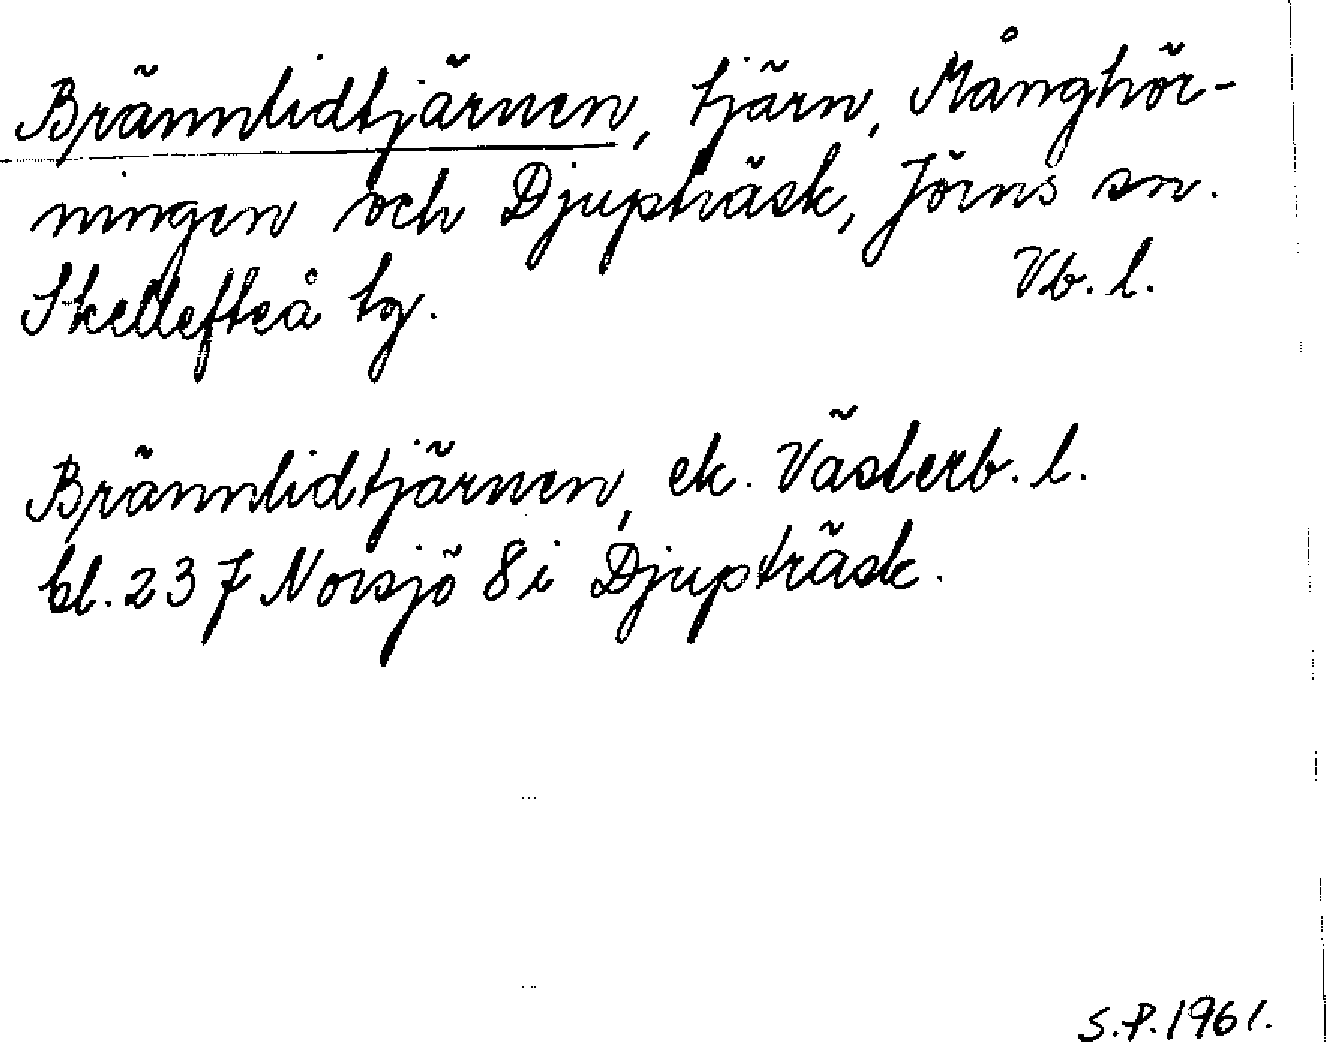 Brännlidtjärnen, tjärn, Månghör-
ningen och Djupträsk, Jörns sn.
Skellefteå tg. Vb. l.
Brännlidtjärnen, ek. Västerb. l.
bl. 237 Norsjö 8i Djupträsk.
S.P. 1961.